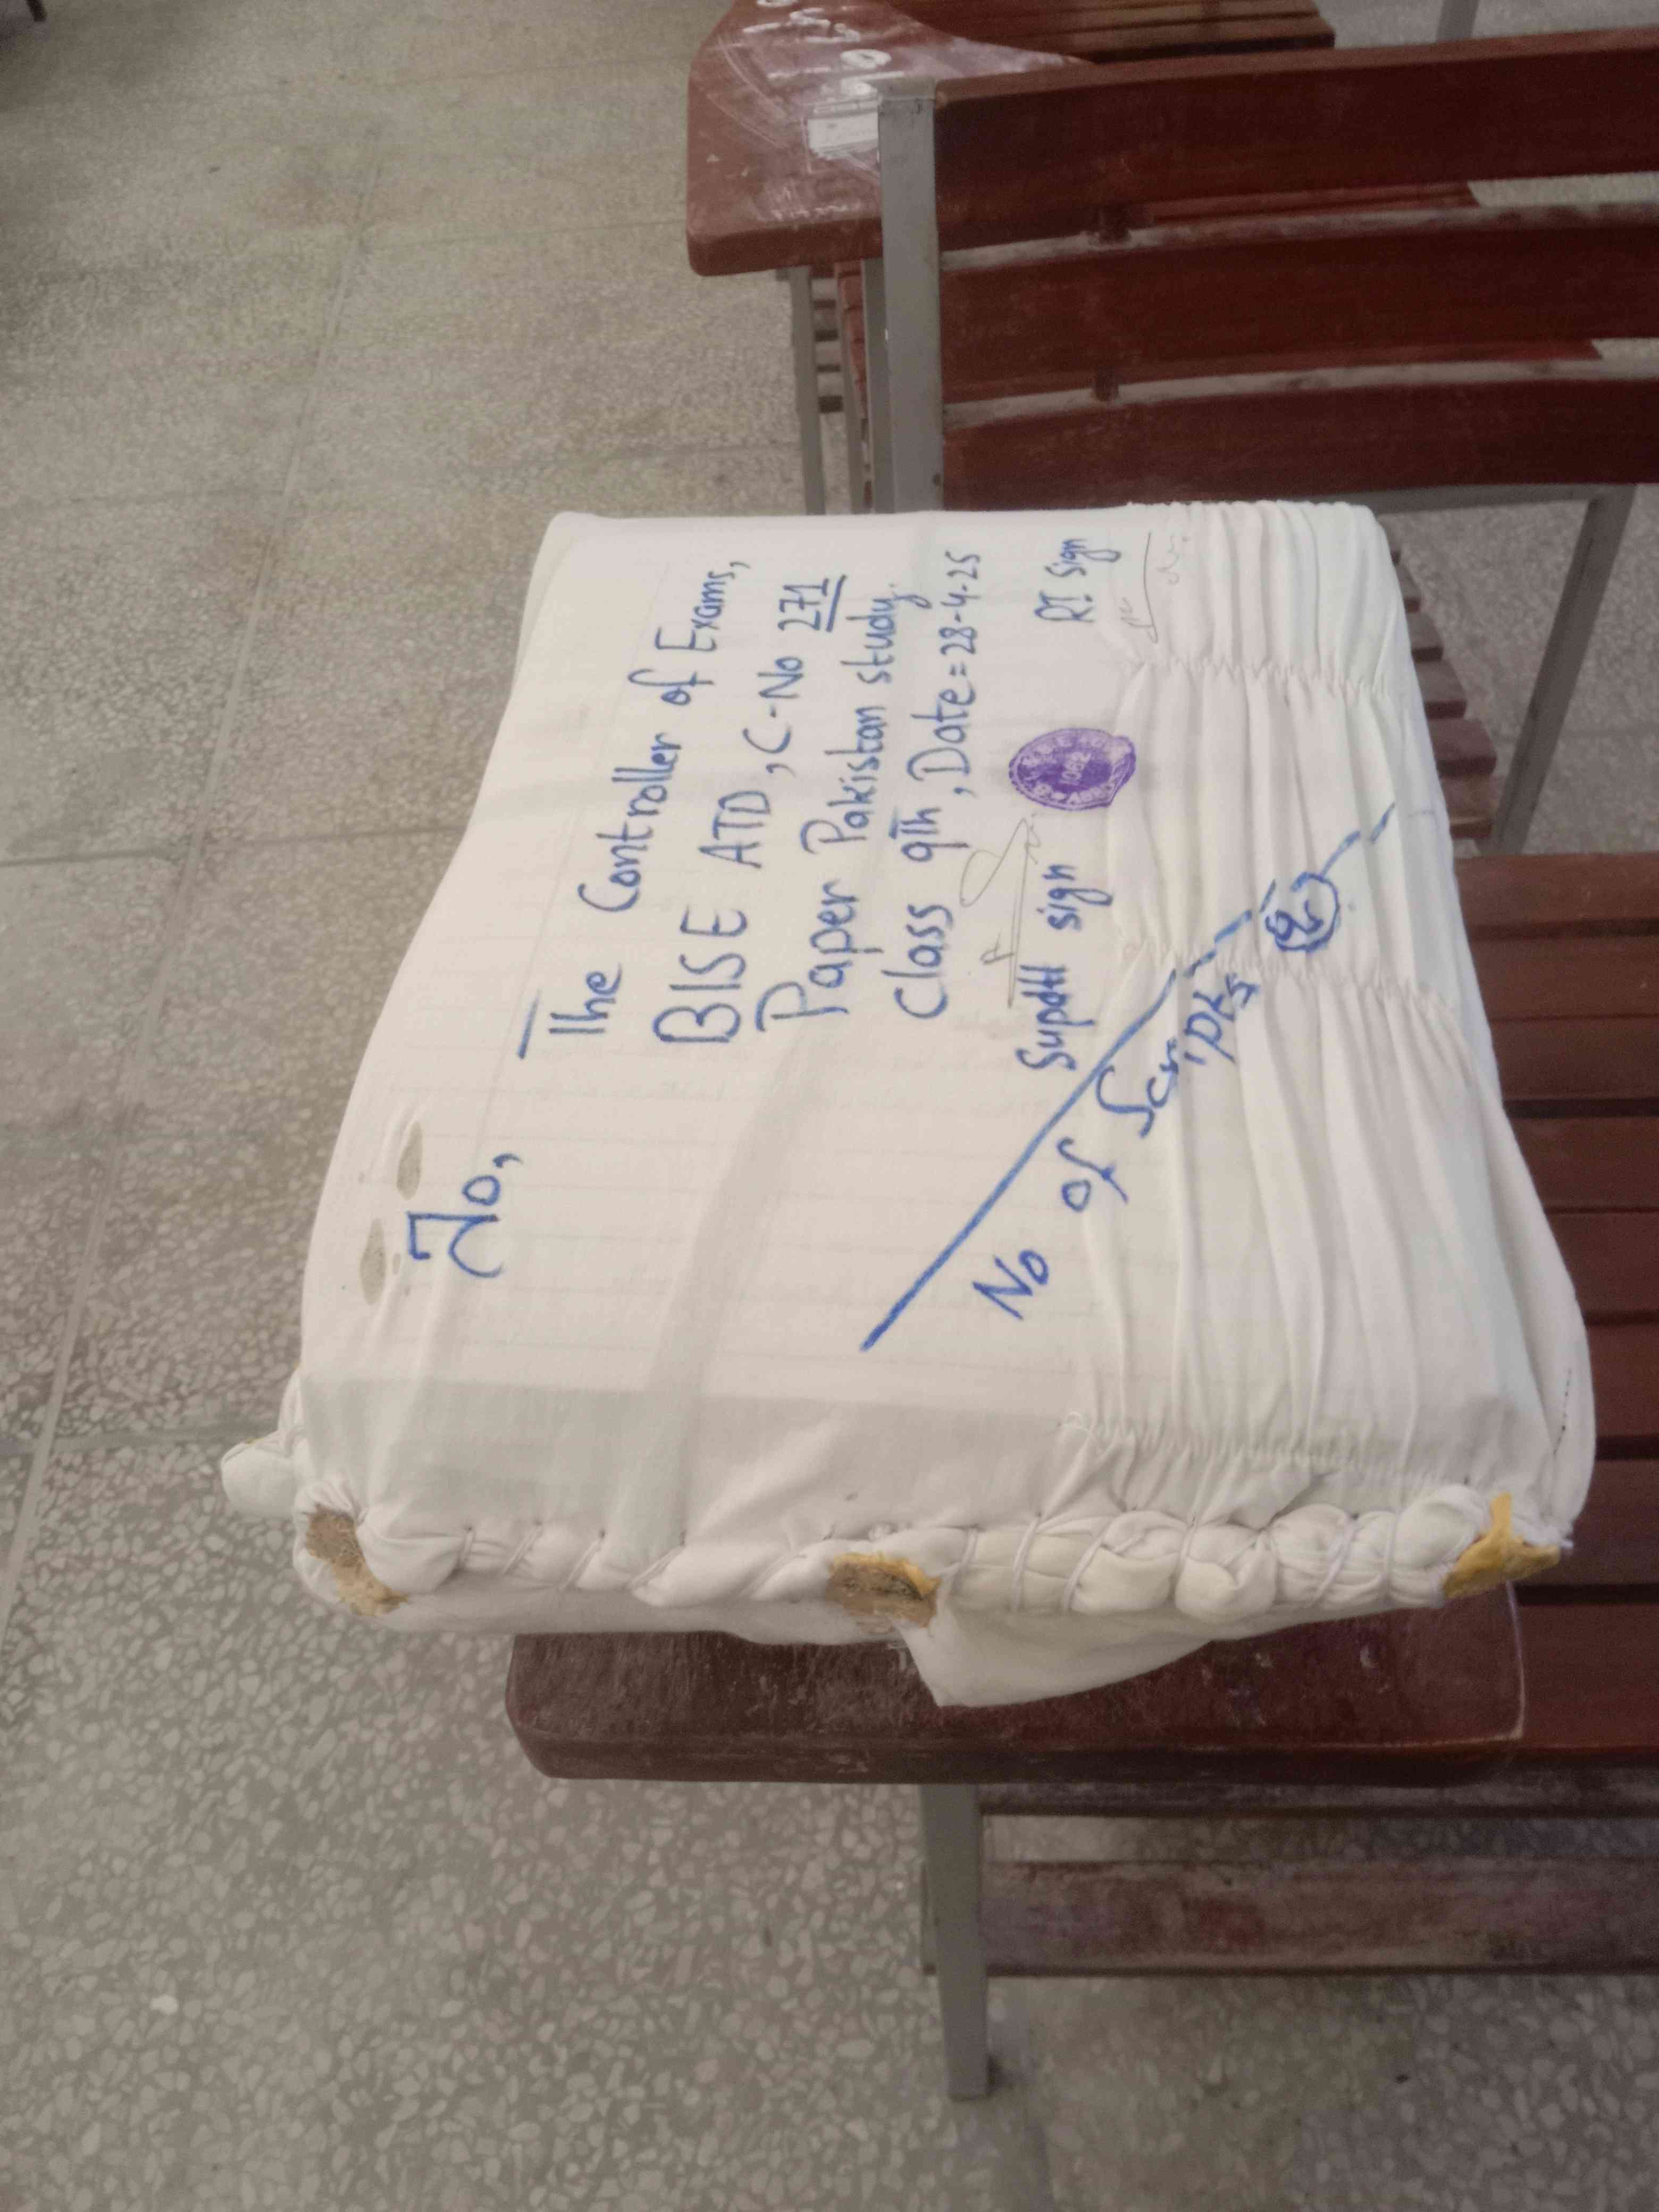 To,
The Controller of Exams,
BISE ATD, C-No 271
Paper Pakistan study.
Class 9th, Date=28-4-25
Supdtt sign
RT. Sign
No of Scripts